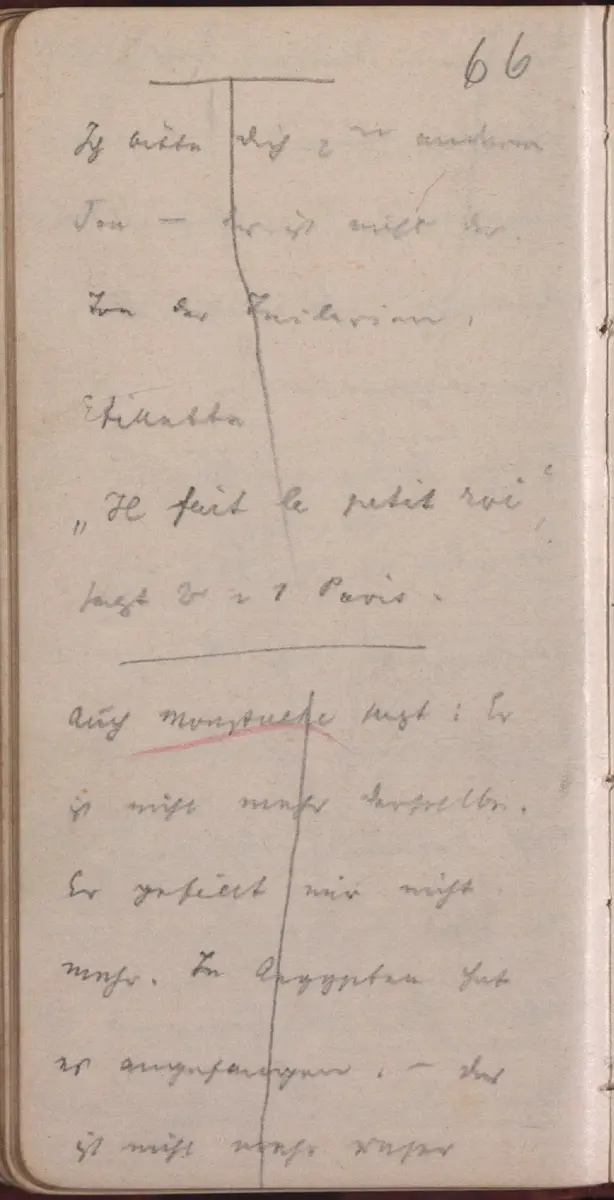 66
Ich bitte Dich, einen anderen
Ton — das ist nicht der
Ton der Tuilerien.
Etikette
„Il fait le petit roi“,
sagt in Paris.
Auch Moustache sagt: Er
ist nicht mehr derselbe.
Er gefällt mir nicht
mehr. In Aegypten hat
es angefangen. — das
ist nicht mehr unser